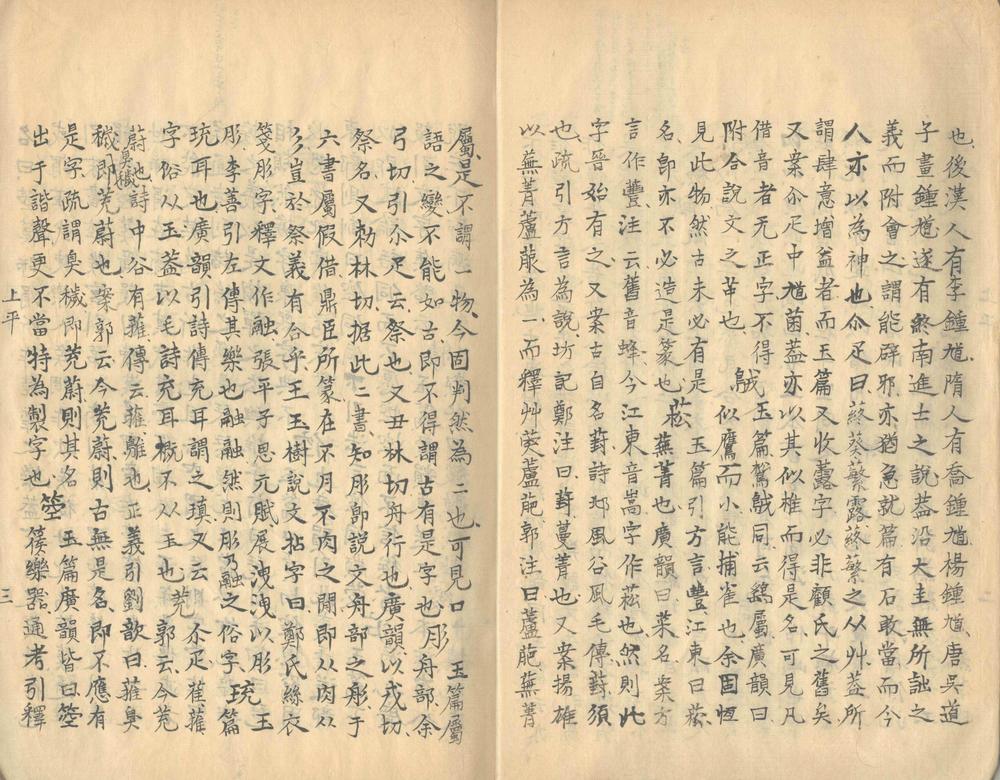 也、後漢人有李鍾馗、隋人有喬鍾馗、楊鍾馗、唐吳道
子畫鍾馗、遂有終南進士之說、蓋沿大圭無所詘之
義而附會之、謂能辟邪、亦猶急就篇有石敢當、而今
人亦以為神也、尒疋曰、蔠葵蘩露、蔠蘩之从艸、蓋所
謂肆意增益者、而玉篇又收蘦字、必非顧氏之舊矣、
又案尒疋中馗菌、蓋亦以其似椎而得是名、可見凡
借音者无正字、不得 䳁 玉篇鴛䳁同、云鷂屬、廣韻曰
附合說文之芾也 似鷹而小、能捕雀也、余固恆
見此物、然古未必有是 菘 玉篇引方言、蘴、江東曰菘、
名、卽亦不必造是篆也 蕪菁也、廣韻曰、菜名、案方
言作蘴、注云、舊音蜂、今江東音嵩、字作菘也、然則此
字晉始有之、又案古自名葑、詩邶風谷風毛傳、葑、須
也、疏引方言為說、坊記鄭注曰、葑、蔓菁也、又案揚雄
以蕪菁蘆菔為一、而釋艸葖蘆萉、郭注曰、蘆萉、蕪菁
屬、是不謂一物、今固判然為二也、可見口 玉篇屬
語之變、不能如古、卽不得謂古有是字也 肜 舟部、余
弓切、引尒疋云、祭也、又丑林切、舟行也、廣韻、以戎切、
祭名、又勑林切、据此二書、知肜卽說文舟部之彤、于
六書屬假借、鼎臣所篆、在不月不肉之閒、卽从肉从
彡、豈於祭義有合乎、王玉樹說文拈字曰、鄭氏絲衣
箋肜字、釋文作融、張平子思元賦、展洩洩以肜
肜、李善引左傳、其樂也融融、然則肜乃融之俗字 珫 玉篇
珫耳也、廣韻引詩傳充耳謂之瑱、又云
字俗从玉、蓋以毛詩充耳、概不从玉也 茺 尒疋、萑蓷、
郭云、今茺
蔚也、詩中谷有蓷、傳云、蓷、鵻也、正義引劉歆曰、蓷、臭
穢、臭穢卽茺蔚也、案郭云今茺蔚、則古無是名、卽不應有
是字、疏謂臭穢卽茺蔚、則其名
出于諧聲、更不當特為製字也 箜 玉篇廣韻皆曰、箜
篌、樂器、通考引釋
上平
三